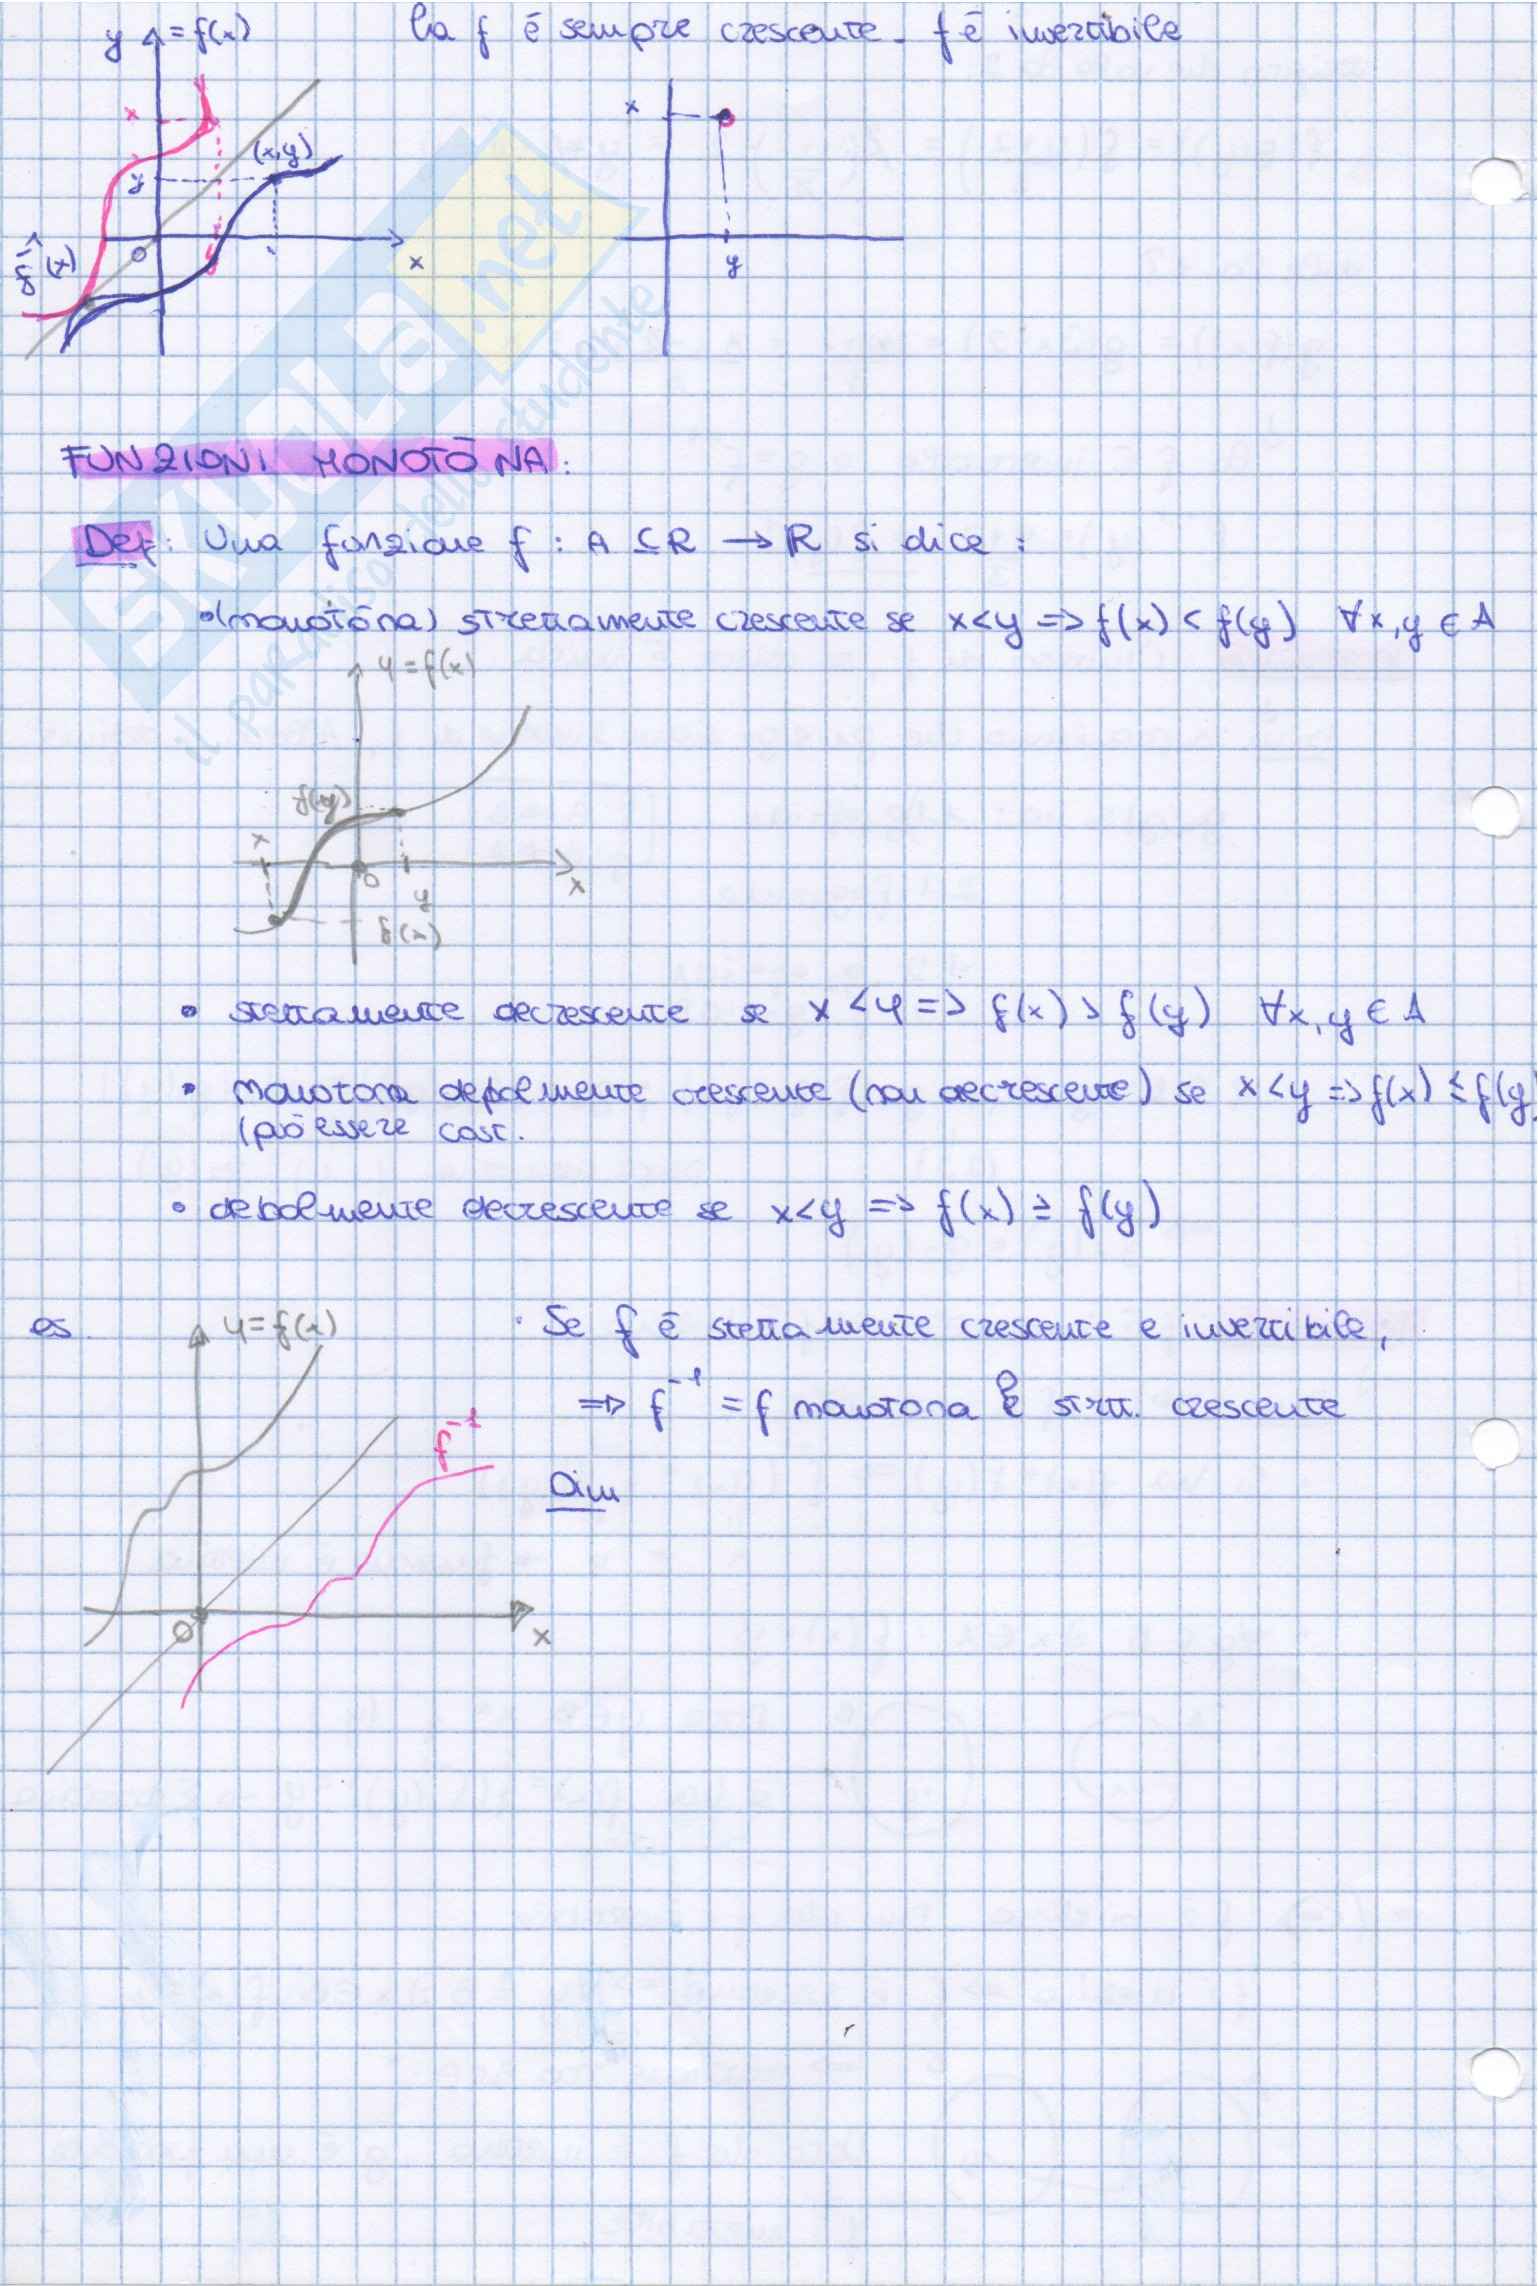 y = f(x) la f è sempre crescente. f è invertibile
x
(x,y)
y
O
x
f⁻¹(x)
x
y
SKUOLA.net
il paradiso dello studente
FUNZIONI MONOTÒNA:
Def: Una funzione f : A ⊆ R → R si dice :
•(monotòna) strettamente crescente se x<y => f(x) < f(y) ∀x,y ∈ A
y = f(x)
f(y)
x
O
y
x
f(x)
• strettamente decrescente se x < y => f(x) > f(y) ∀x, y ∈ A
• monotona debolmente crescente (non decrescente) se x<y => f(x) ≤ f(y)
(può essere cost.
• debolmente decrescente se x<y => f(x) ≥ f(y)
es. y = f(x)
• Se f è strettamente crescente e invertibile,
=> f⁻¹ = f monotona è strett. crescente
f⁻¹
Dim
O
x